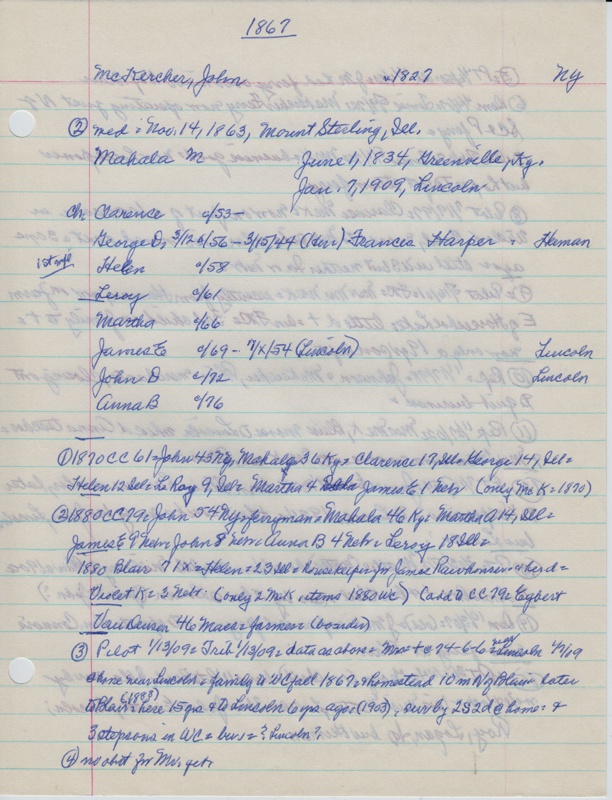 1867
McKercher, John c/1827 NY
② med = Nov. 14, 1863, Mount Sterling, Ill.
Mahala M June 1, 1834, Greenville, Ky.
Jan. 7, 1909, Lincoln
ch Clarence c/53 -
George D, 3/12 c/56 - 3/15/44 (Her) Frances Harper = Herman
1st wf Helen c/58
Leroy c/61
Martha c/66
James E c/69 - 7/x/54 (Lincoln) Lincoln
John D c/72 Lincoln
Anna B c/76
① 1870 CC 61 = John 43 NY, Mahala 36 Ky = Clarence 17, Ill = George 14, Ill =
Helen 12 Ill = LeRoy 9, Ill = Martha 4 James E 1 Neb (only McK = 1870)
② 1880 CC 79 = John 54 NY = ferryman = Mahala 46 Ky = Martha A 14, Ill =
James E 9 Neb = John 8 Neb = Anna B 4 Neb = Leroy 18 Ill =
1880 Blair 71 = Helen = 23 Ill = housekeeper for James =
Violet K = 3 Neb = (only 2 McK items 1880 WC) (add to CC 79 = Egbert
Van Deusen 46 Mass = farmer = (boarder)
③ Pilot 1/13/09 = Trib 1/13/09 = data as above = Mrs + @ 74-6-6 = near Lincoln 1/7/09
@ home near Lincoln = family to WC fall 1867 = homestead 10 m N of Blair = later
to Blair (1888) = here 15 yrs = to Lincoln 6 yrs ago = (1903), surv by 2S 2d @ home = &
3 stepsons in WC = bur = ? Lincoln?
④ no obit for Mr. yet